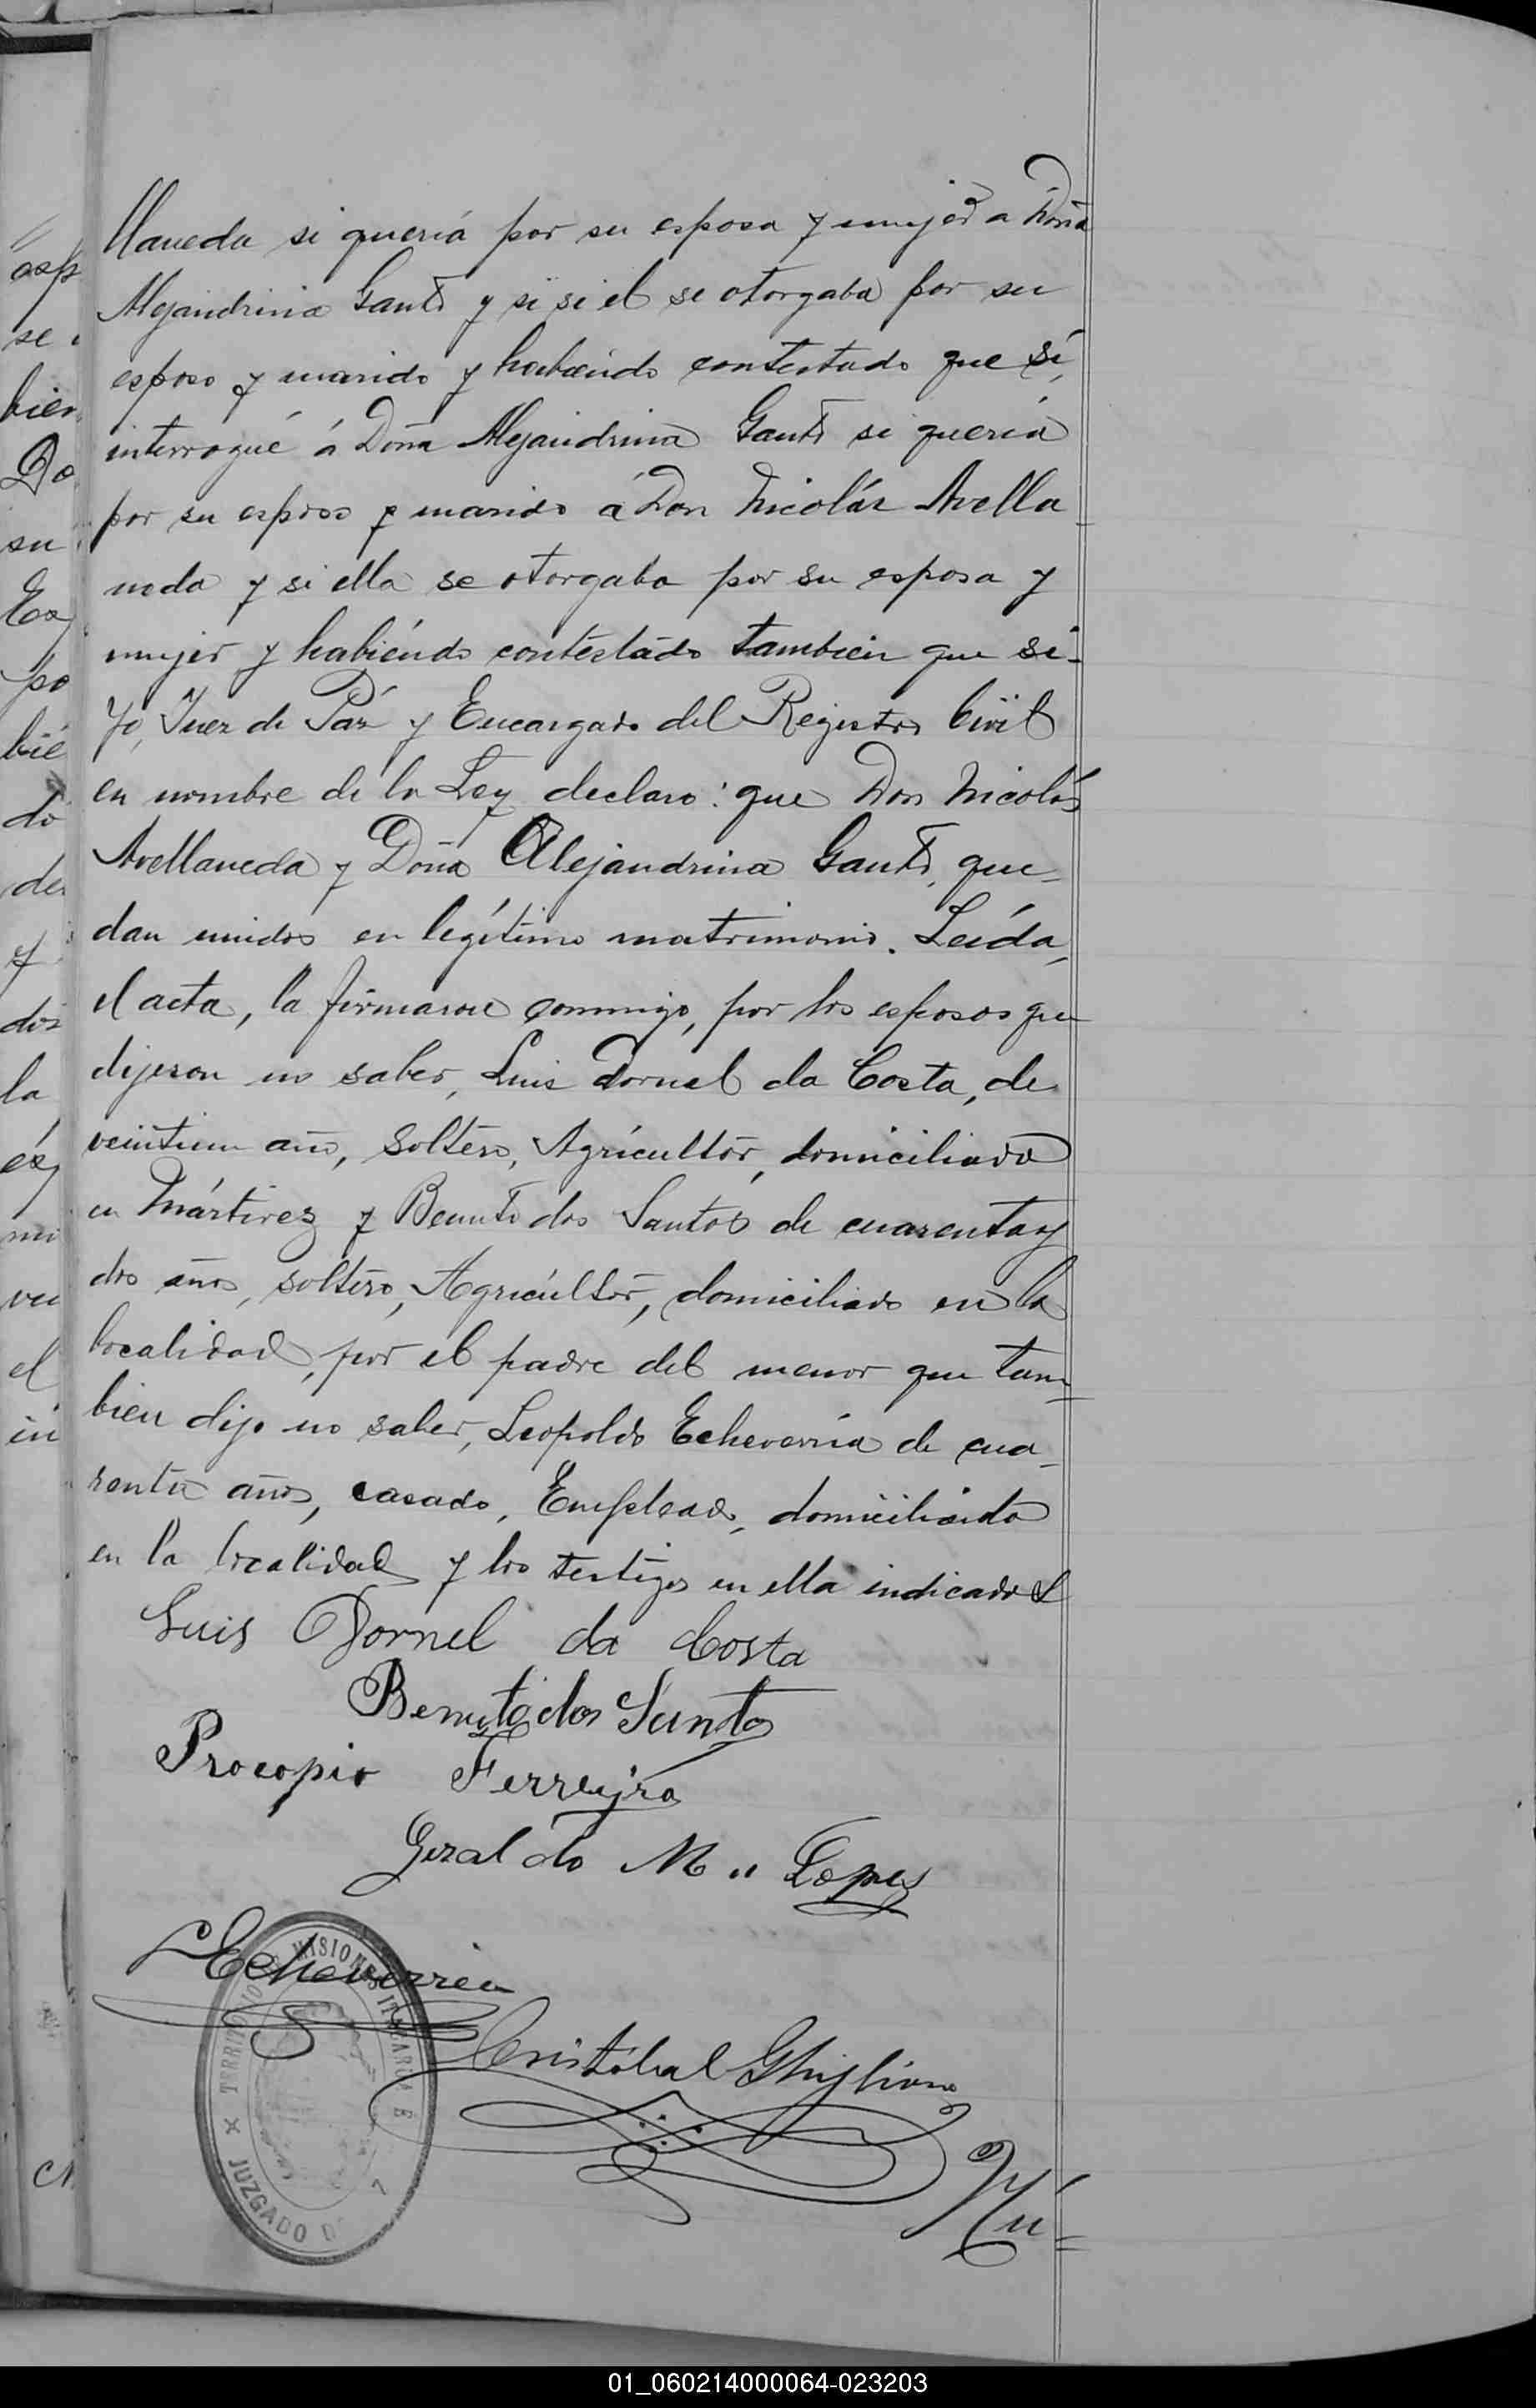 llaneda si quería por su esposa y mujer a Doña
Alejandrina Gauto y si si el se otorgaba por su
esposo y marido y habiendo contestado que sí,
interrogué á Doña Alejandrina Gauto si quería
por su esposo y marido á Don Nicolás Avella-
neda y si ella se otorgaba por su esposa y
mujer y habiéndo contestado tambien que si-
Yo, Juez de Paz y Encargado del Registro Civil
en nombre de la Ley declaro: que Don Nicolás
Avellaneda y Doña Alejandrina Gauto, que-
dan unidos en legítimo matrimonio. Leída,
el acta, la firmaron conmigo, por los esposos que
dijeron no saber, Luis Dornel da Costa, de
veintiun año, soltero, Agricultor, domiciliado
en Mártirez y Benuto dos Santos de cuarenta y
dos años, soltero, Agricultor, domiciliado en la
localidad, por el padre del menor que tam-
bien dijo no saber, Leopoldo Echeverría de cua-
renta años, casado, Empleado, domiciliado
en la localidad y los testigos en ella indicados
Luis Dornel da Costa
Benuto dos Santos
Procopio Ferreyra
Geraldo M. Lopes
LEcheverria
Cristóbal Ghigliono
TERRITORIO MISIONES
JUZGADO D
Nú-
asp
se
bien
Do
su
po
bié
do
de
y
dos
la
el
in
01_060214000064-023203